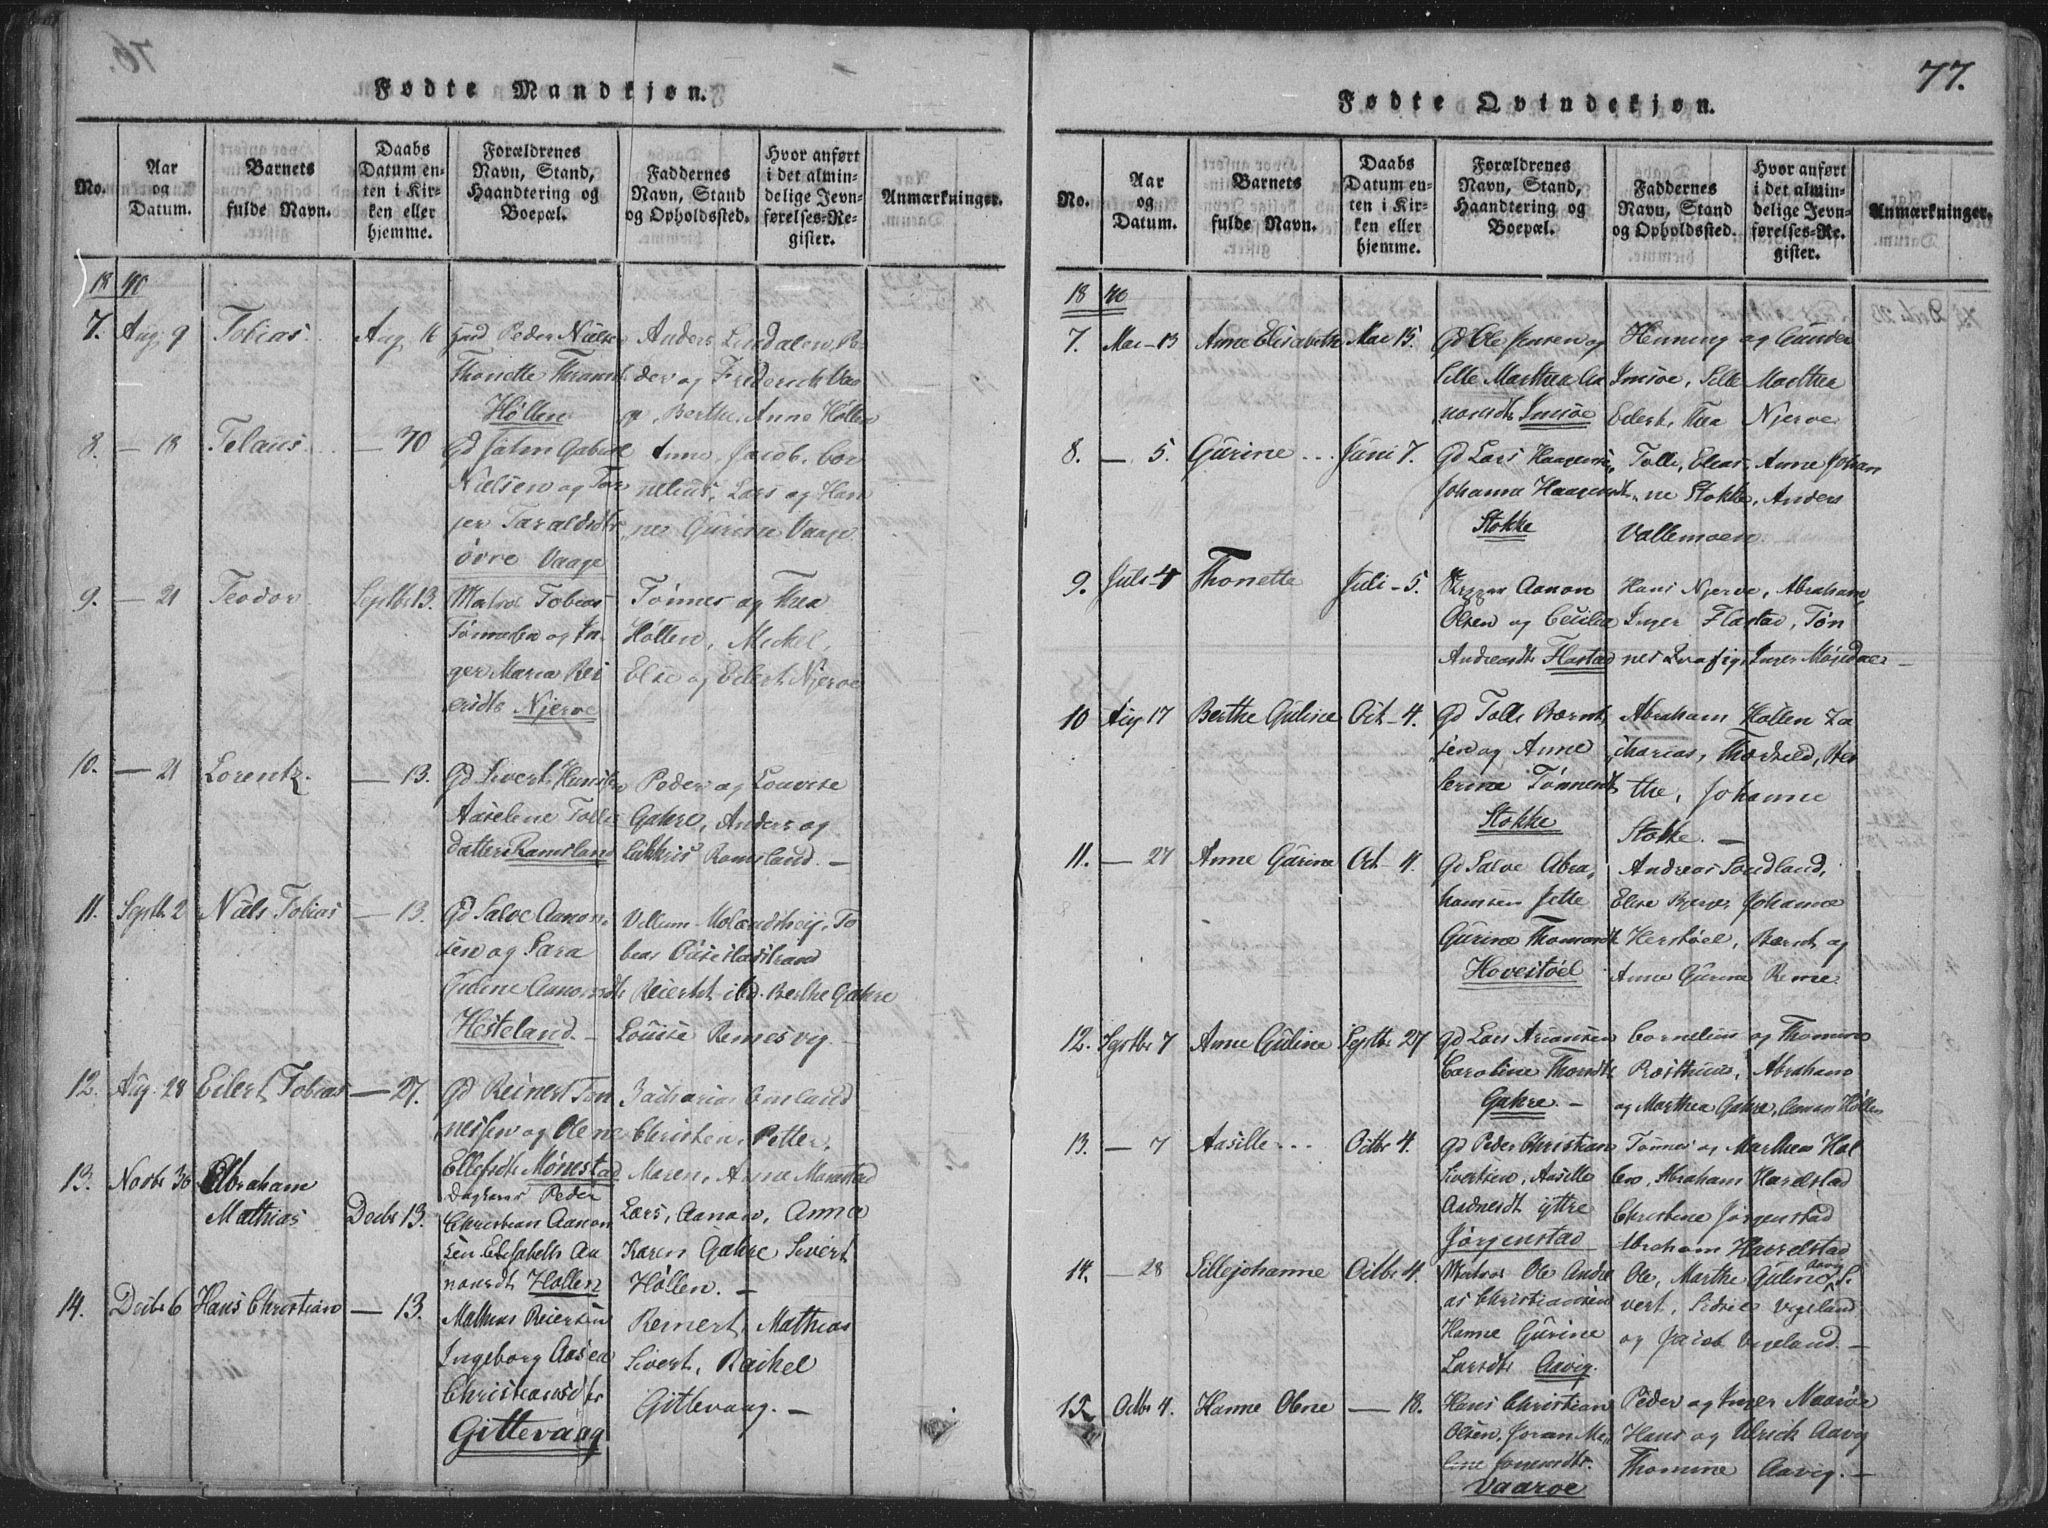 76.
Fødte Mandkjøn.
No.
Aar og Datum.
Barnets fulde Navn.
Daabs Datum enten i Kirken eller hjemme.
Forældrenes Navn, Stand, Haandtering og Boepæl.
Faddernes Navn, Stand og Opholdssted.
Hvor anført i det almindelige Jevnførelses-Register.
Anmærkninger.
18 40
7. Aug. 9 Tobias Aug. 16
Peder Nielse
Thonette
Høllen
Anders Lindalen, Pe
der og Frederich Vaa
ge, Berthe, Anne Høllen
8. — 18 Telaus — 30
Gd John Gabriel
Nielsen og Tor
jer Taraldsdtr
øvre Vaage
Anne, Jacob, Cor
nelius, Lars og Han
ne Gurine Vaage
9. — 21 Teodor Septbr 13.
Matros Tobias
Tønnesen og In-
ger Maria Rei
ersdtr Njerve
Tønnes og Thea
Høllen, Mickel,
Else og Eilert Njerve
10. — 21 Lorentz. — 13.
Gd Sivert Hansen
Aaselene Tolles
datter Ramsland
Peder og Lovise
Gahre, Anders og
Ramsland. —
11. Septb. 2 Niels Tobias — 13.
Gd Salve Aanon-
sen og Sara
Guline Aanonsdtr
Hesteland. —
Villum Molandshej, To
bias
Reiertet ibd. Berthe Gahre
Louise Remesvig —
12. Aug. 28 Eilert Tobias — 27.
Gd Reinert Tøn
nessen og Olene
Ellefsdtr Mønestad
Zacharias
Christen, Petter,
Maren, Anne Mønestad
13. Novbr 30 Abraham
Mathias Decbr 13.
Peder
Christian Aanon
sen Elisabeth Aa
nonsdt Høllen
Lars, Aanon, Anna
Karen Gahre Sivert
Høllen. —
14. Decbr 6 Hans Christian — 13.
Mathias Reiersen
Ingeborg Aasea
Christiansdtr
Gittevaag
Reinert, Mathias
Sivert, Rachel
Gittevaag. —
77.
Fødte Qvindekjøn.
No.
Aar og Datum.
Barnets fulde Navn.
Daabs Datum enten i Kirken eller hjemme.
Forældrenes Navn, Stand, Haandtering og Boepæl.
Faddernes Navn, Stand og Opholdssted.
Hvor anført i det almindelige Jevnførelses-Register.
Anmærkninger.
18 40
7. Mai — 13 Anne Elisabeth Mai 15.
Gd Ole Jensen og
Sille Marthea Aa
nonsdtr Imsøe
Henning og Gunder
Imsøe, Sille Marthea
Eilert, Thea Njerve
8. — 5. Gurine Juni 7.
Gd Lars Haagensen,
Johanne Haagensdt
Stokke
Tolle, Elias, Anne Johan
ne Stokke, Anders
Vallemoen.
9. Juli — 4 Thonette Juli — 5.
Aanon
Olsen og Cecilia
Andreasdtr Flastad
Hans Njerve, Abraham,
Inger Flastad, Tøn
nes Inger Møsedal —
10 Aug 17 Berthe Guline Oct — 4.
Gd Tolle Bernt-
sen og Anne
Serine Tønnesdt
Stokke
Abraham Høllen Za
charias, Thorkeld, Ber
the, Johanne
Stokke. —
11. — 27 Anne Gurine Oct — 4.
Gd Salve Abra-
hamsen Jette
Gurine Thomasdt
Hovestøel
Andreas Sandland,
Elise Johanne
Herstøel, Bernt og
Anne Gurine Reme
12. Septbr 7 Anne Guline Septbr 27
Gd Lars Ariansen
Caroline Thorsdtr
Gahre. —
Cornelius og Thomine
Rasthuus, Abraham
og Marthea Gahre, Aanon Høllen
13. — 7 Aasille Octbr 4.
Gd Peder Christian
Sivertsen, Aasille
Aadnesdt ÿttre
Jørgenstad
Tønnes og Marthea Hol
Abraham Harelstad
Christine Jørgenstad
Abraham Hasselstad
14. — 28 Sillejohanne Octbr 4.
Matros Ole Andre
as Christiansen
Hanne Gurine
Larsdtr Aavig.
Ole, Marthe Guline Aavig Si
vert, Sidsel Vigeland
og Jacob Vigeland. —
15 Octbr 4. Hanne Olene — 18.
Hans Christian
Olsen, Joran Ma-
line
Vaarøe
Peder og Inger Naarøe
Hans og Ulrich Aavig
Thomine Aavig. —